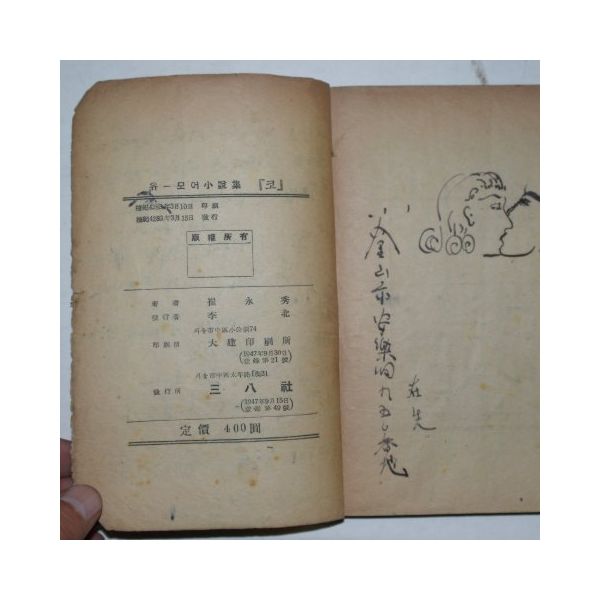 유-모어小說集 『코』
檀紀4283年3月10日 印刷
檀紀4283年3月15日 發行
版權所有
著者 崔永秀
發行者 李北
서울市中區小公洞74
印刷所 大建印刷所
(1947年9月30日
登錄第21號)
서울市中區太平路
發行所 三八社
(1947年9月15日
登錄第49號)
定價 400圓
釜山市安樂洞九五〇番地